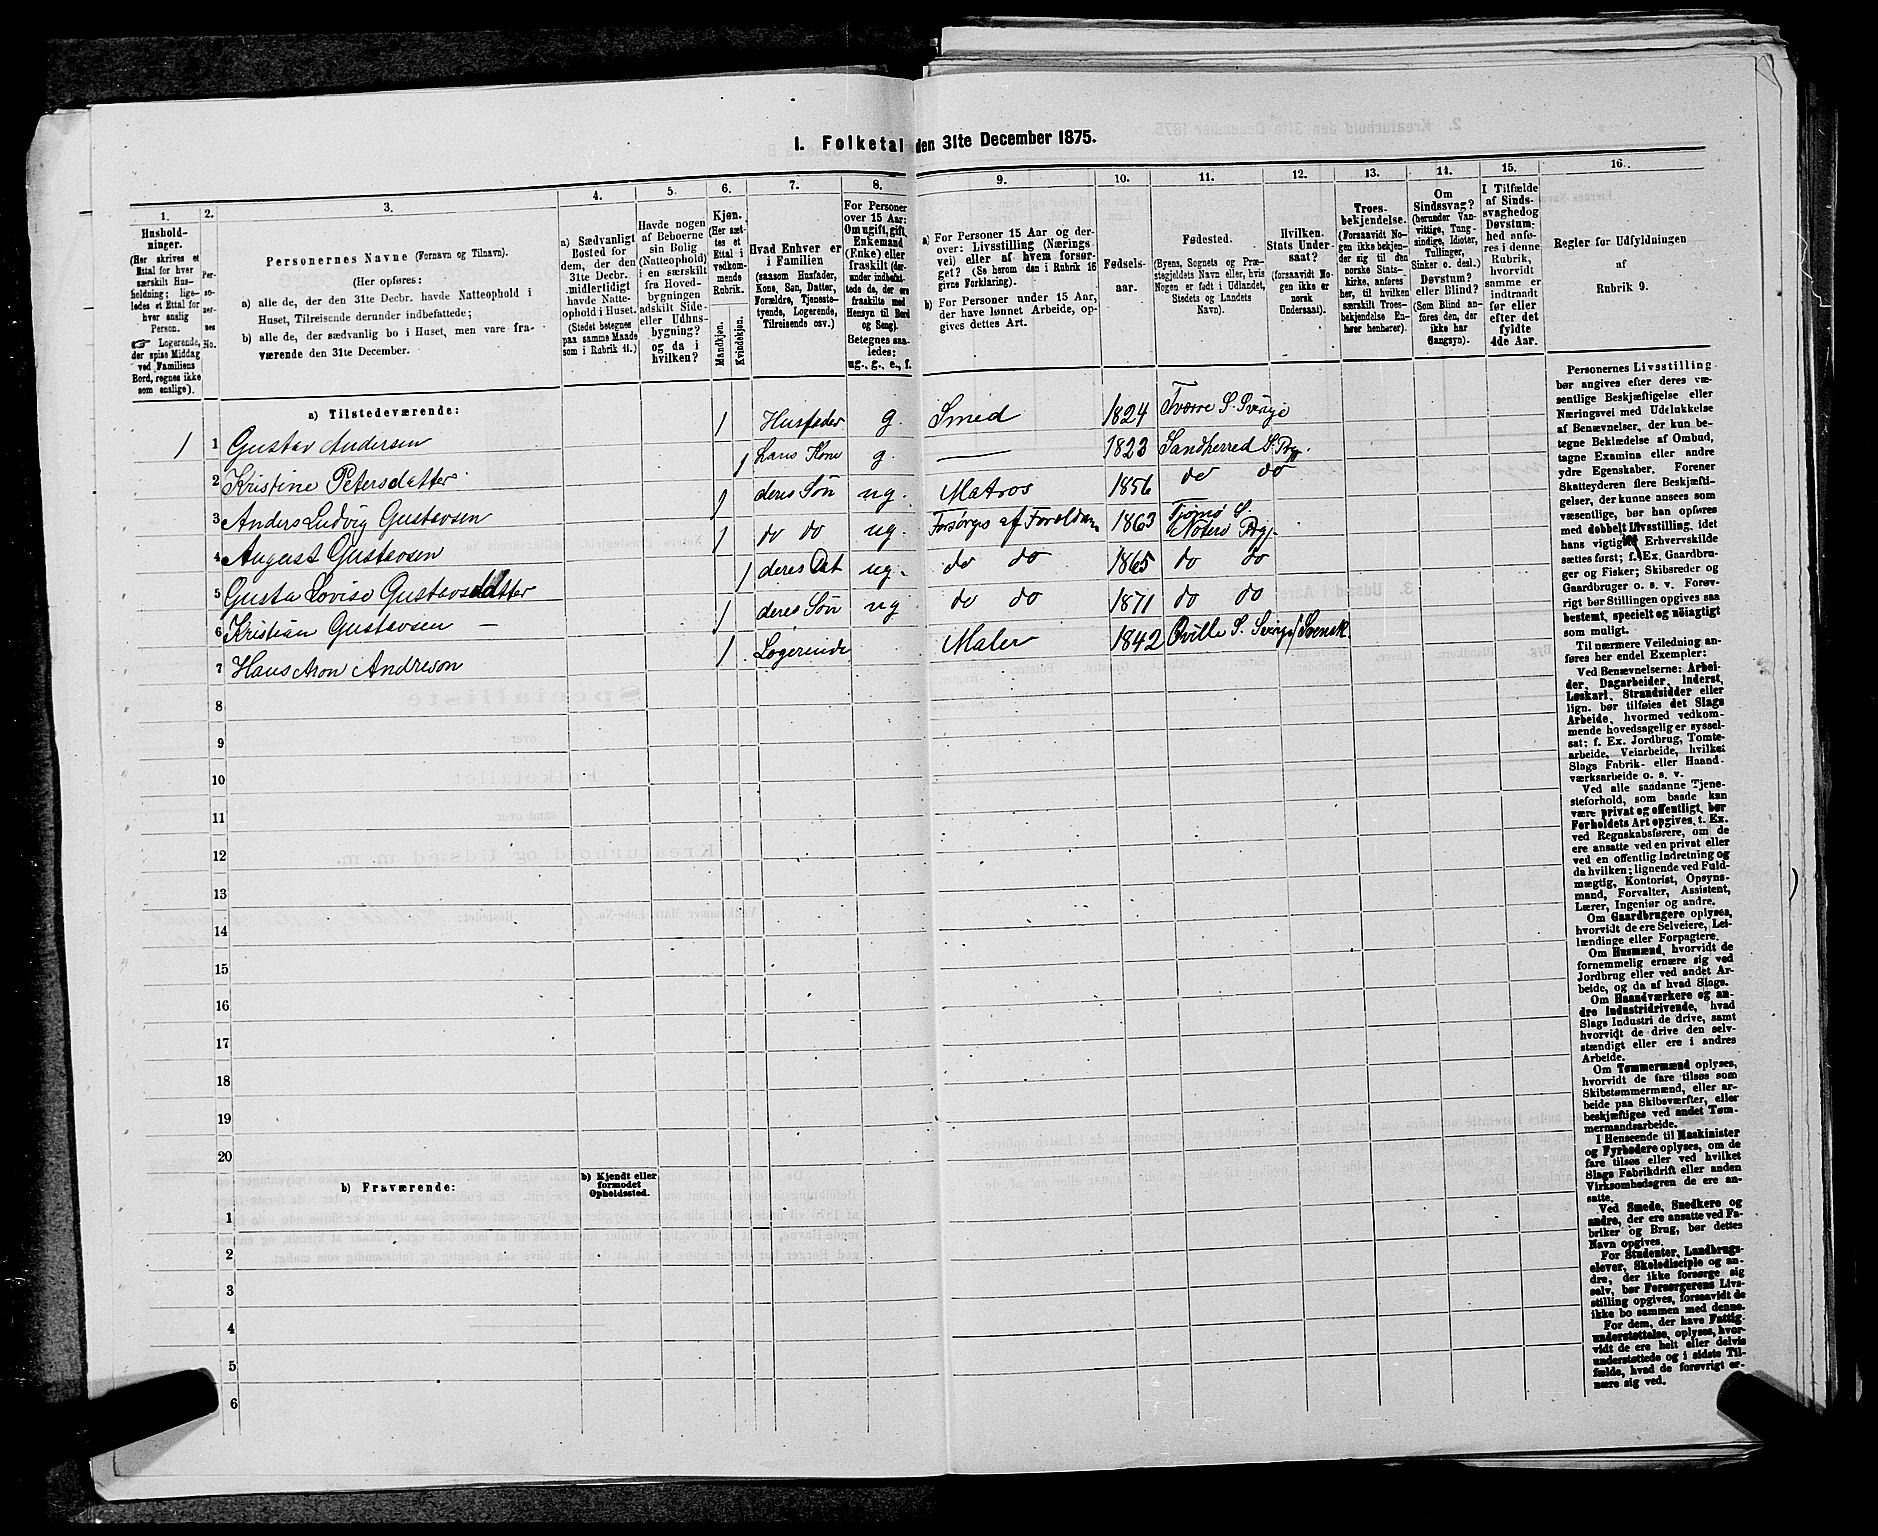 I. Folketal den 31te December 1875.
1. 2. 3. 4. 5. 6. 7. 8. 9. 10. 11. 12. 13. 14. 15. 16.
Hushold-
ninger.
(Her skrives et
Ettal for hver
særskilt Hus-
holdning; lige-
ledes et Ettal for
hver enslig
Person.
☞ Logerende,
der spise Middag
ved Familiens
Bord, regnes ikke
som enslige).
Per-
so-
ner-
nes
No.
Personernes Navne (Fornavn og Tilnavn).
(Her opføres:
a) alle de, der den 31te Decbr. havde Natteophold i
Huset, Tilreisende derunder indbefattede;
b) alle de, der sædvanlig bo i Huset, men vare fra-
værende den 31te December.
a) Sædvanligt
Bosted for
dem, der den
31te Decbr.
midlertidigt
havde Natte-
ophold i Huset.
(Stedet betegnes
paa samme Maade
som i Rubrik 11.)
Havde nogen
af Beboerne
sin Bolig
(Natteophold)
i en særskilt
fra Hoved-
bygningen
adskilt Side-
eller Udhus-
bygning?
og da i
hvilken?
Kjøn.
(Her sæt-
tes et
Ettal i
vedkom-
mende
Rubrik.
Mandkjøn.
Kvindekjøn.
Hvad Enhver er
i Familien
(saasom Husfader,
Kone, Søn, Datter,
Forældre, Tjeneste-
tyende, Logerende,
Tilreisende osv.)
For Personer
over 15 Aar:
Om ugift, gift,
Enkemand
(Enke) eller
fraskilt (der-
under indbefat-
tede de, der ere
fraskilte med
Hensyn til Bord
og Seng).
Betegnes saa-
ledes:
ug., g., e., f.
a) For Personer 15 Aar og der-
over: Livsstilling (Nærings
vei) eller af hvem forsør-
get? (Se herom den i Rubrik 16
givne Forklaring).
b) For Personer under 15 Aar,
der have lønnet Arbeide, op-
gives dettes Art.
Fødsels-
aar.
Fødested.
(Byens, Sognets og Præ-
stegjeldets Navn eller, hvis
Nogen er født i Udlandet,
Stedets og Landets
Navn).
Hvilken
Stats Under-
saat?
(forsaavidt No-
gen ikke er
norsk
Undersaat).
Troes-
bekjendelse.
(Forsaavidt No-
gen ikke bekjen-
der sig til den
norske Stats-
kirke, anføres
her, til hvilken
særskilt Troes-
bekjendelse En-
hver henhører).
Om
Sindssvag?
(herunder Van-
vittige, Tung-
sindige, Idioter,
Tullinger,
Sinker o. desl.)
Døvstum?
eller Blind?
(Som Blind an-
føres den, der
ikke har
Gangsyn).
I Tilfælde
af Sinds-
svaghed og
Døvstum-
hed anfø-
res i denne
Rubrik,
hvorvidt
samme er
indtraadt
før eller
efter det
fyldte
4de Aar.
Regler for Udfyldningen
af
Rubrik 9.
a) Tilstedeværende:
1 1 Gustav Andersen 1 Husfader g. Smed 1824 Tvørre S. Sverige
2 Kristine Petersdatter 1 hans Kone g. — 1823 Sandherred S. Prgj.
3 Anders Ludvig Gustavsen 1 deres Søn ug. Matros 1856 do do
4 August Gustavsen 1 do do ug. Forsørges af Forældrene 1863 Tjømø S. Nøterø Prgj.
5 Gusta Lovise Gustavsdatter 1 deres Dat ug. do do 1865 do do
6 Kristian Gustavsen — 1 deres Søn ug do do 1871 do do
7 Hans Aron Andreson 1 Logerende Maler 1842 Qville S. Sverge/Svensk.
8
9
10
11
12
13
14
15
16
17
18
19
20
b) Fraværende:
b) Kjendt eller
formodet
Opholdssted.
1
2
3
4
5
6
Personernes Livsstilling
bør angives efter deres væ-
sentlige Beskjæftigelse eller
Næringsvei med Udelukkelse
af Benævnelser, der kun be-
tegne Beklædelse af Ombud,
tagne Examina eller andre
ydre Egenskaber. Forener
Skatteyderen flere Beskjæfti-
gelser, der kunne ansees som
væsentlige, bør han opføres
med dobbelt Livsstilling, idet
hans vigtigste Erhvervskilde
sættes først; f. Ex. Gaardbru-
ger og Fisker; Skibsreder og
Gaardbruger o. s. v. Forøv-
rigt bør Stillingen opgives saa
bestemt, specielt og nøiagtigt
som muligt.
Til nærmere Veiledning an-
føres her endel Exempler:
Ved Benævnelserne: Arbei-
der, Dagarbeider, Inderst,
Løskarl, Strandsidder eller
lign. bør tilføies det Slags
Arbeide, hvormed vedkom-
mende hovedsagelig er syssel-
sat; f. Ex. Jordbrug, Tomte-
arbeide, Veiarbeide, hvilket
Slags Fabrik- eller Haand-
værksarbeide o. s. v.
Ved alle saadanne Tjene-
steforhold, som baade kan
være privat og offentligt, bør
Forholdets Art opgives, t. Ex.
ved Regnskabsførere, om de
ere ansatte ved en privat eller
ved en offentlig Indretning og
da hvilken; lignende ved Fuld-
mægtig, Kontorist, Opsyns-
mand, Forvalter, Assistent,
Lærer, Ingeniør og andre.
Om Gaardbrugere oplyses,
hvorvidt de ere Selveiere, Lei-
lændinge eller Forpagtere.
Om Husmænd, hvorvidt de
fornemmelig ernære sig ved
Jordbrug eller ved andet Ar-
beide, og da af hvad Slags.
Om Haandværkere og an-
dre Industridrivende, hvad
Slags Industri de drive, samt
hvorvidt de drive den selv-
stændigt eller ere i andres
Arbeide.
Om Tømmermænd oplyses,
hvorvidt de fare tilsøs som
Skibstømmermænd, eller ar-
beide paa Skibsværfter, eller
beskjæftiges ved andet Tøm-
mermandsarbeide.
I Henseende til Maskinister
og Fyrbødere oplyses, om de
fare tilsøs eller ved hvilket
Slags Fabrikdrift eller anden
Virksomhedsgren de ere an-
satte.
Ved Smede, Snedkere og
andre, der ere ansatte ved Fa-
briker og Brug, bør dettes
Navn opgives.
For Studenter, Landbrugs-
elever, Skoledisciple og an-
dre, der ikke forsørge sig
selv, bør Forsørgerens Livs-
stilling opgives, forsaavidt de
ikke bo sammen med denne.
For dem, der have Fattig-
understøttelse, oplyses, hvor-
vidt de ere helt eller delvis
understøttede og i sidste Til-
fælde, hvad de forøvrigt er-
nære sig ved.